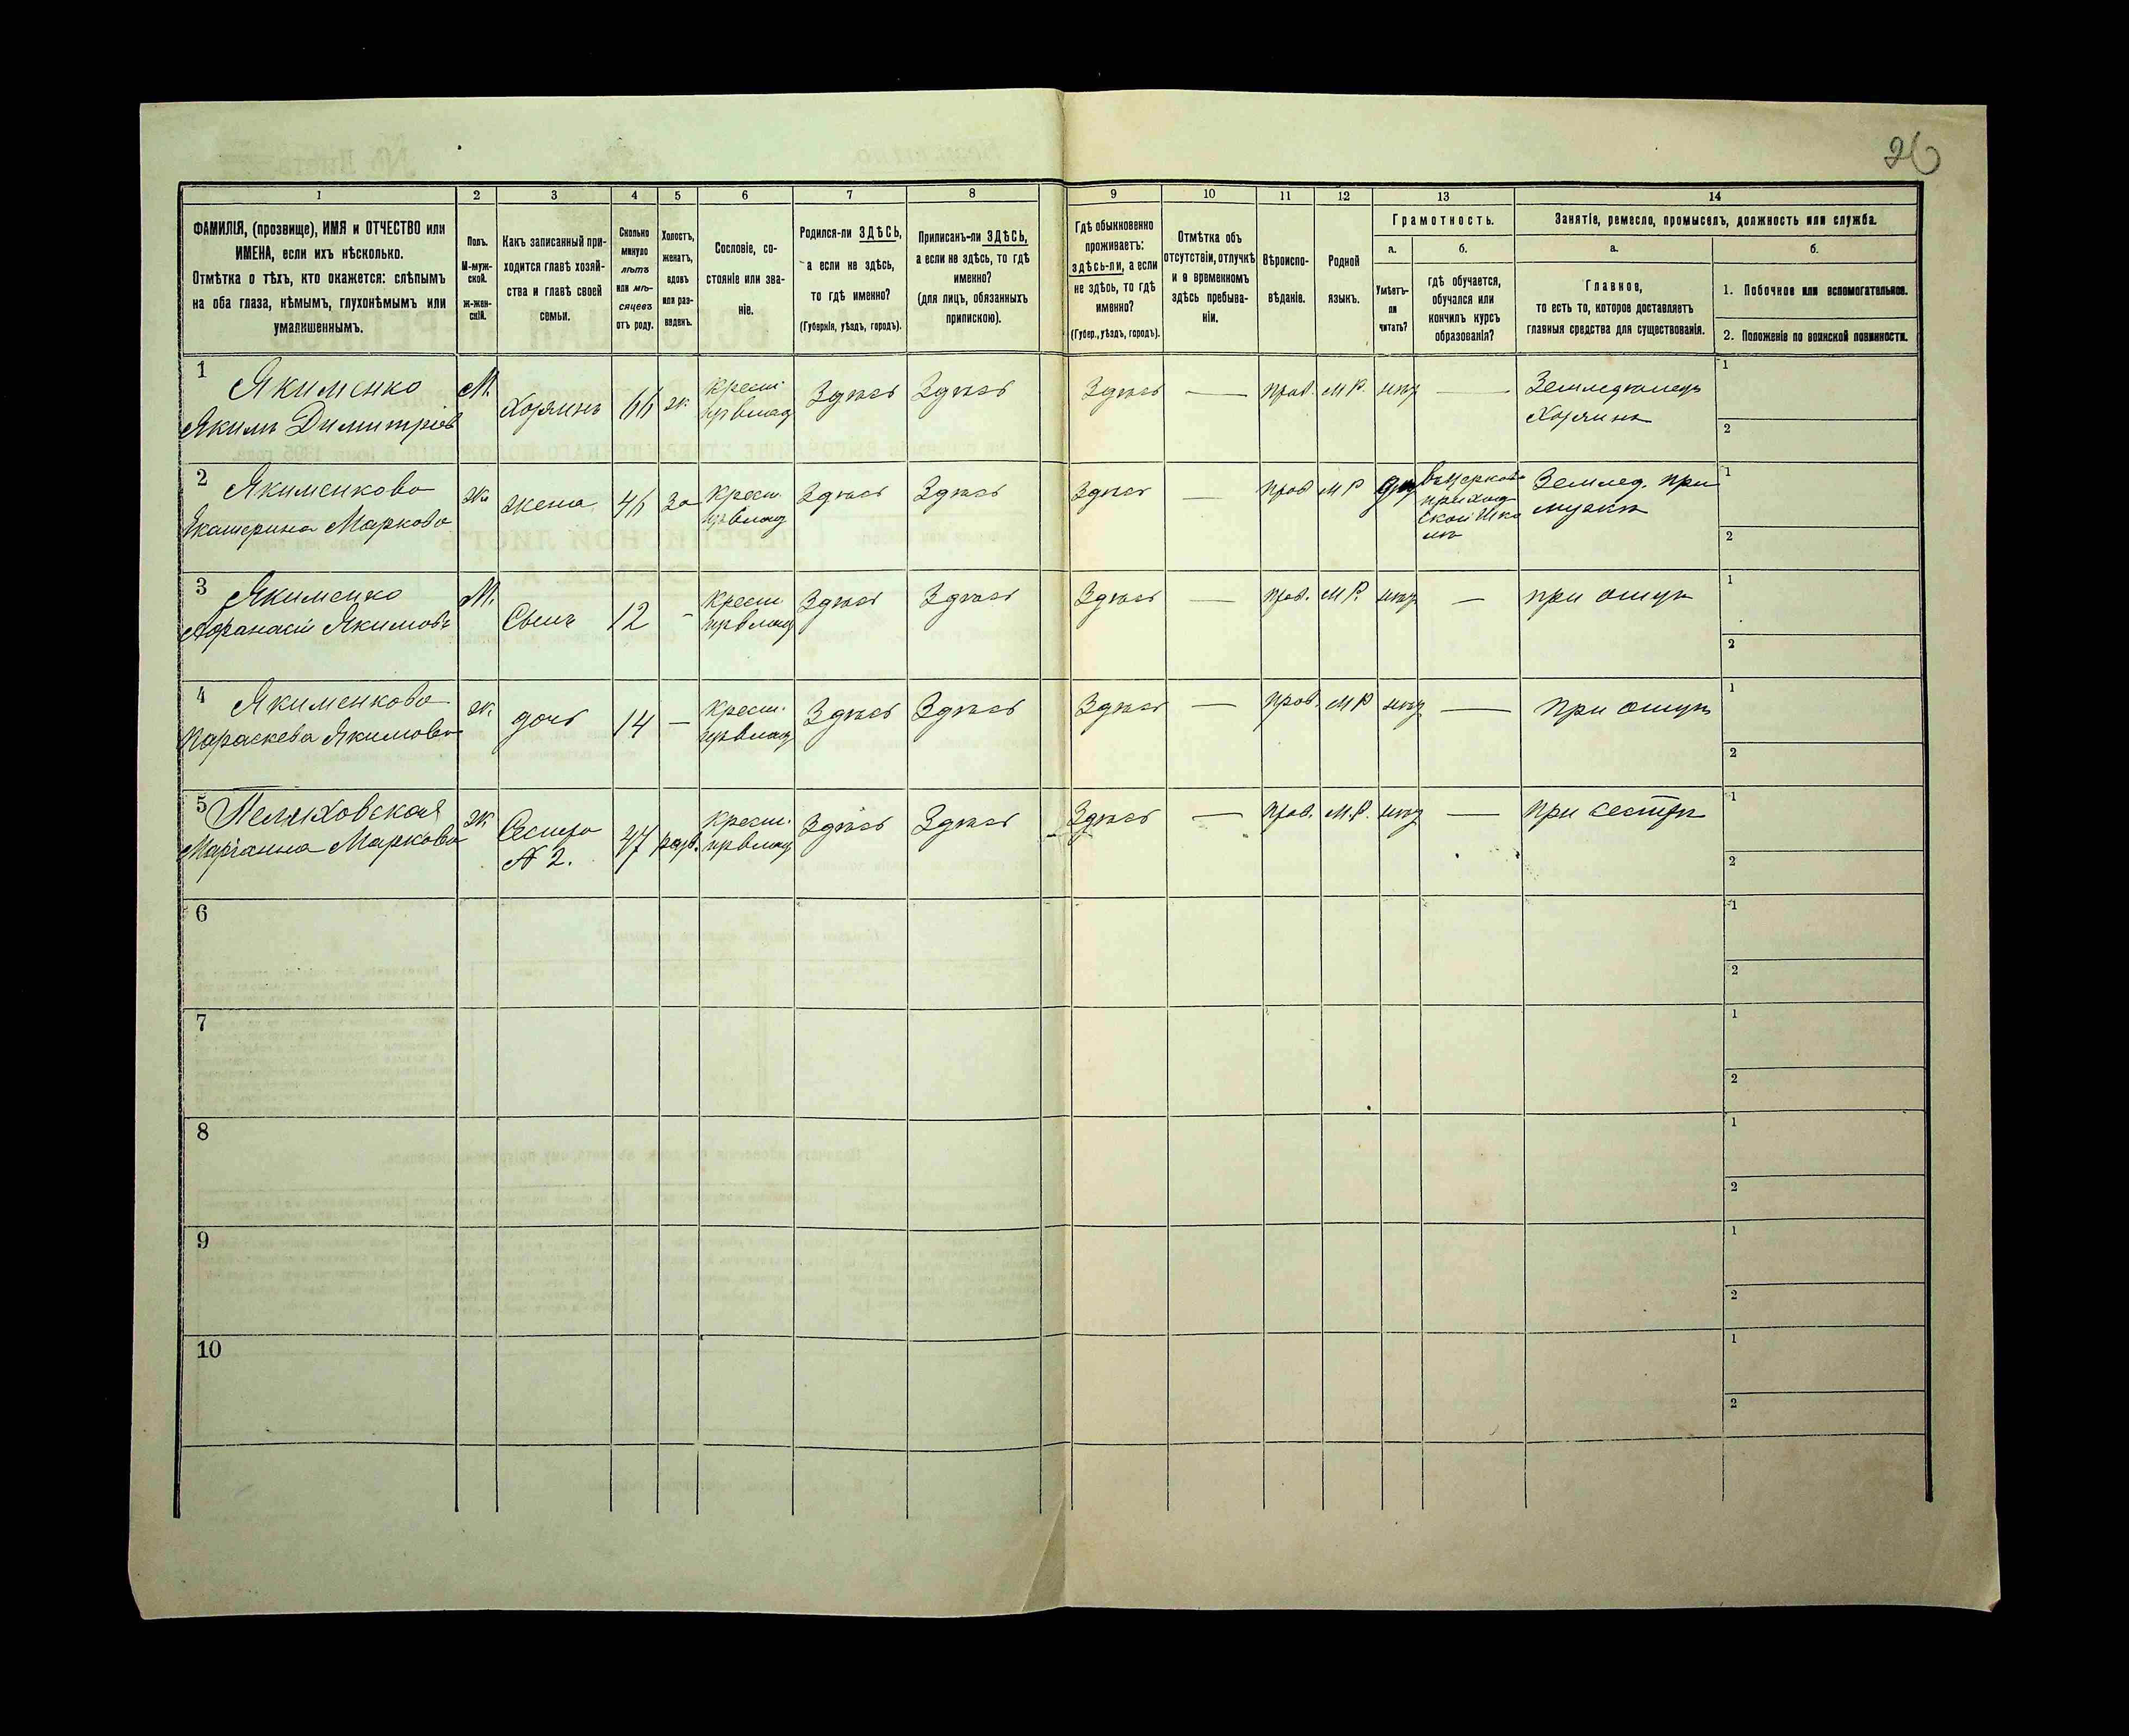 26
1 2 3 4 5 6 7 8 9 10 11 12 13 14
ФАМИЛІЯ, (прозвище), ИМЯ и ОТЧЕСТВО или
ИМЕНА, если ихъ нѣсколько.
Отмѣтка о тѣхъ, кто окажется: слѣпымъ
на оба глаза, нѣмымъ, глухонѣмымъ или
умалишеннымъ.
Полъ.
М-муж-
ской.
ж-жен-
скій.
Какъ записанный при-
ходится главѣ хозяй-
ства и главѣ своей
семьи.
Сколько
минуло
лѣтъ
или мѣ-
сяцевъ
отъ роду.
Холостъ,
женатъ,
вдовъ
или раз-
веденъ.
Сословіе, со-
стояніе или зва-
ніе.
Родился-ли ЗДѢСЬ,
а если не здѣсь,
то гдѣ именно?
(Губернія, уѣздъ, городъ).
Приписанъ-ли ЗДѢСЬ,
а если не здѣсь, то гдѣ
именно?
(для лицъ, обязанныхъ
припискою).
Гдѣ обыкновенно
проживаетъ:
здѣсь-ли, а если
не здѣсь, то гдѣ
именно?
(Губер., уѣздъ, городъ).
Отмѣтка объ
отсутствіи, отлучкѣ
и о временномъ
здѣсь пребыва-
ніи.
Вѣроиспо-
вѣданіе.
Родной
языкъ.
Грамотность.
а.
Умѣетъ-
ли
читать?
б.
гдѣ обучается,
обучался или
кончилъ курсъ
образованія?
Занятіе, ремесло, промыселъ, должность или служба.
а.
Главное,
то есть то, которое доставляетъ
главныя средства для существованія.
б.
1. Побочное или вспомогательное.
2. Положеніе по воинской повинности.
1 Якименко
Якимъ Димитріев
М. Хозяинъ 66 ж. Крест. Здѣсь Здѣсь Здѣсь — прав. М.Р. нѣтъ — Земледѣлецъ
Хозяинъ
1
2
2 Якименкова
Екатерина Маркова
ж. жена 46 за Крест. Здѣсь Здѣсь Здѣсь — прав М Р да Въ церков
приход
ской шко
лѣ
Землед. при
мужѣ
1
2
3 Якименко
Афанасій Якимовъ
М. Сынъ 12 - Крест. Здѣсь Здѣсь Здѣсь — прав. М Р. нѣтъ — при отцѣ
1
2
4 Якименкова
Параскева Якимова
ж. дочь 14 — Крест. Здѣсь Здѣсь Здѣсь — прав. М Р нѣтъ — при отцѣ
1
2
5 Пелиховская
Маріанна Маркова
ж Сестра
№ 2.
47 Крест. Здѣсь Здѣсь Здѣсь — прав. М.Р. нѣтъ — при сестрѣ
1
2
6
1
2
7
1
2
8
1
2
9
1
2
10
1
2